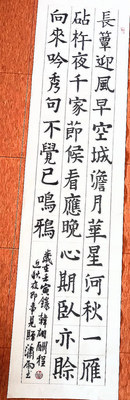 長簟迎風早空城澹月華星河秋一雁
砧杵夜千家節候看應晚心期臥亦賒
向來吟秀句不覺已鳴鴉
歲在壬寅錄韓翃酬程
近秋夜即事見贈